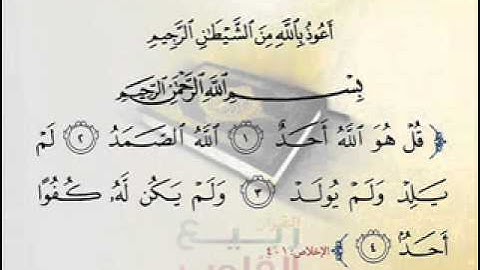 أَعُوذُ بِاللَّهِ مِنَ الشَّيْطَانِ الرَّجِيمِ
بِسْمِ اللَّهِ الرَّحْمَٰنِ الرَّحِيمِ
﴿ قُلْ هُوَ اللَّهُ أَحَدٌ ١ اللَّهُ الصَّمَدُ ٢ لَمْ
يَلِدْ وَلَمْ يُولَدْ ٣ وَلَمْ يَكُن لَّهُ كُفُوًا
أَحَدٌ ٤ ﴾ الإخلاص: ١-٤
القرآن
ربيع
القلوب